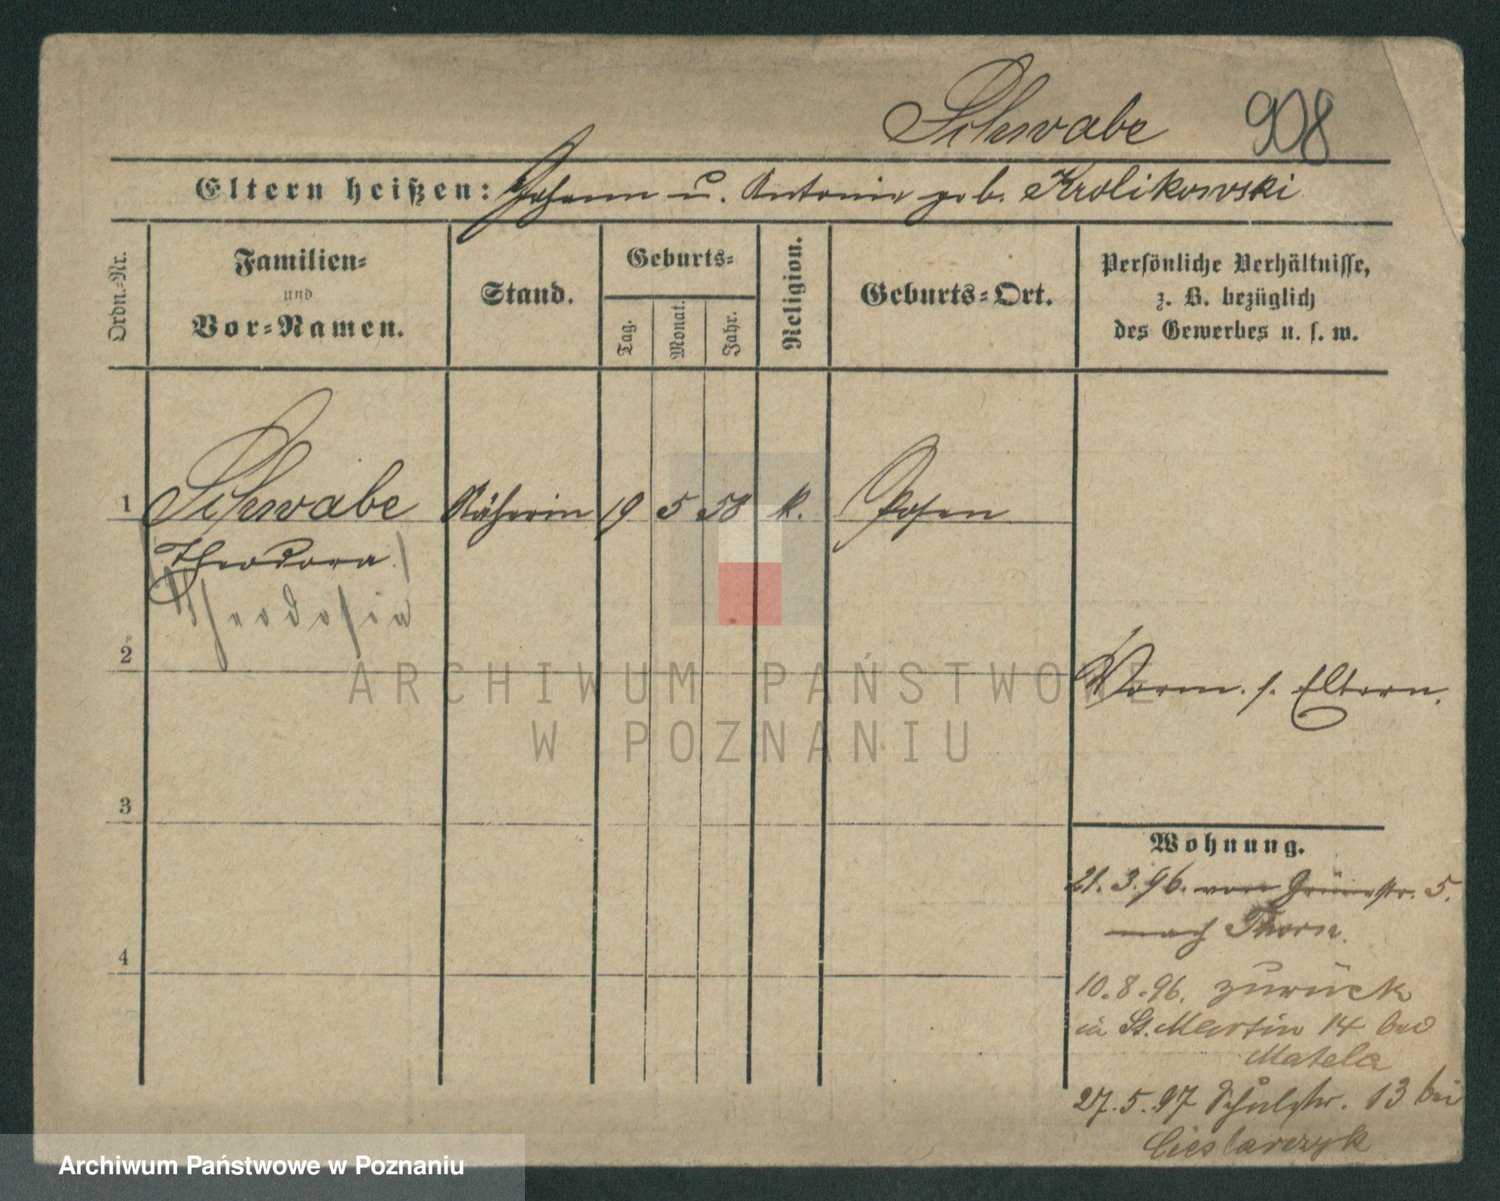 Schwabe 908
Eltern heißen: Johann u. Antonie geb. Krolikowski
Ordn.-Nr.
Familien-
und
Vor-Namen.
Stand.
Geburts-
Tag.
Monat.
Jahr.
Religion.
Geburts-Ort.
Persönliche Verhältnisse,
z. B. bezüglich
des Gewerbes u. s. w.
1 Schwabe Näherin 19 5 58 k. Posen
Theodora
Theodosia
2
Vorm. s. Eltern.
3
Wohnung.
21. 3. 96. von Grünestr. 5.
nach Thorn.
4
10. 8. 96. zurück
in St. Martin 14 bei
Matela
27. 5. 97 Schulstr. 13 bei
Cieslarczyk
ARCHIWUM PAŃSTWOWE
W POZNANIU
Archiwum Państwowe w Poznaniu